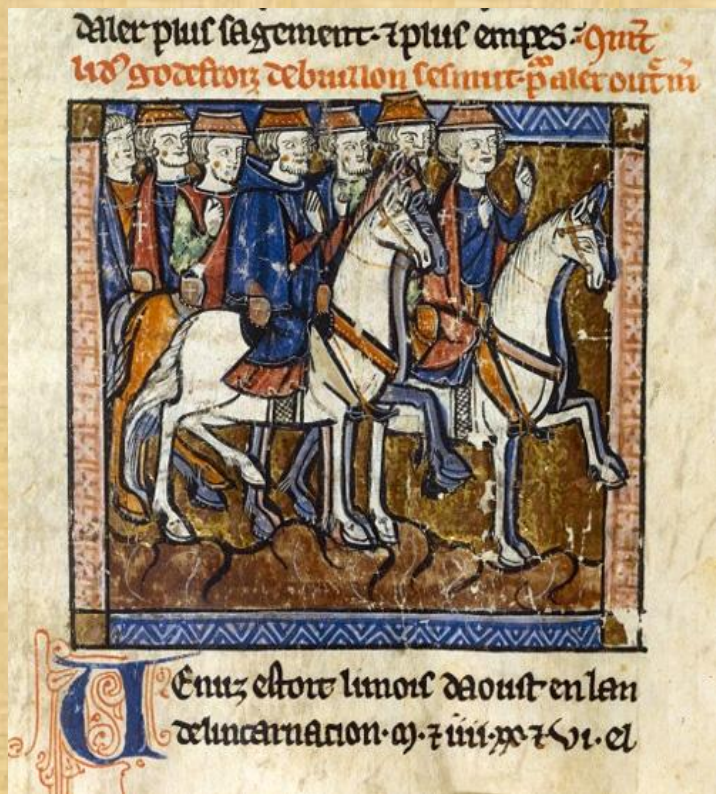 daler plus sagement · ⁊ plus empes · Qu͞t
li dͦ godefroiz de buillon sesmut · pͣ aler out͛ m̃
Uenuz estoit li mois daoust en lan
de lincarnacion · m · ⁊ iiii · xx · ⁊ vi · el